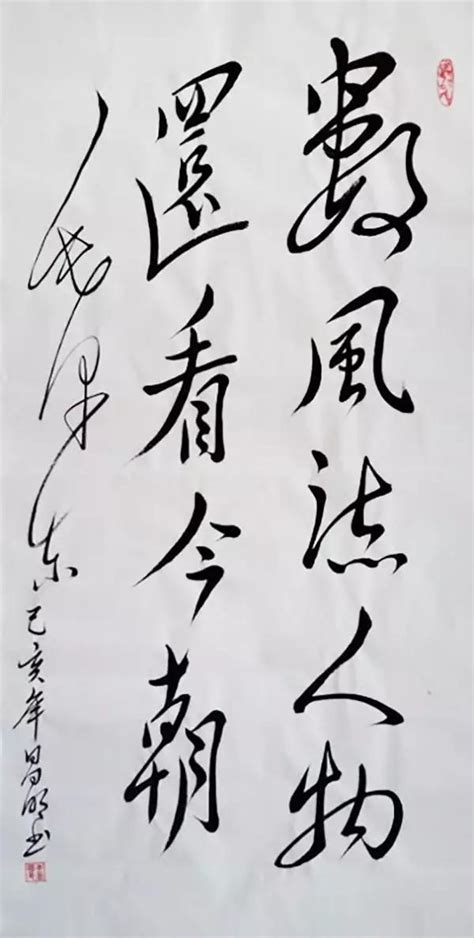 數風流人物
還看今朝
毛泽东 己亥年昌明书